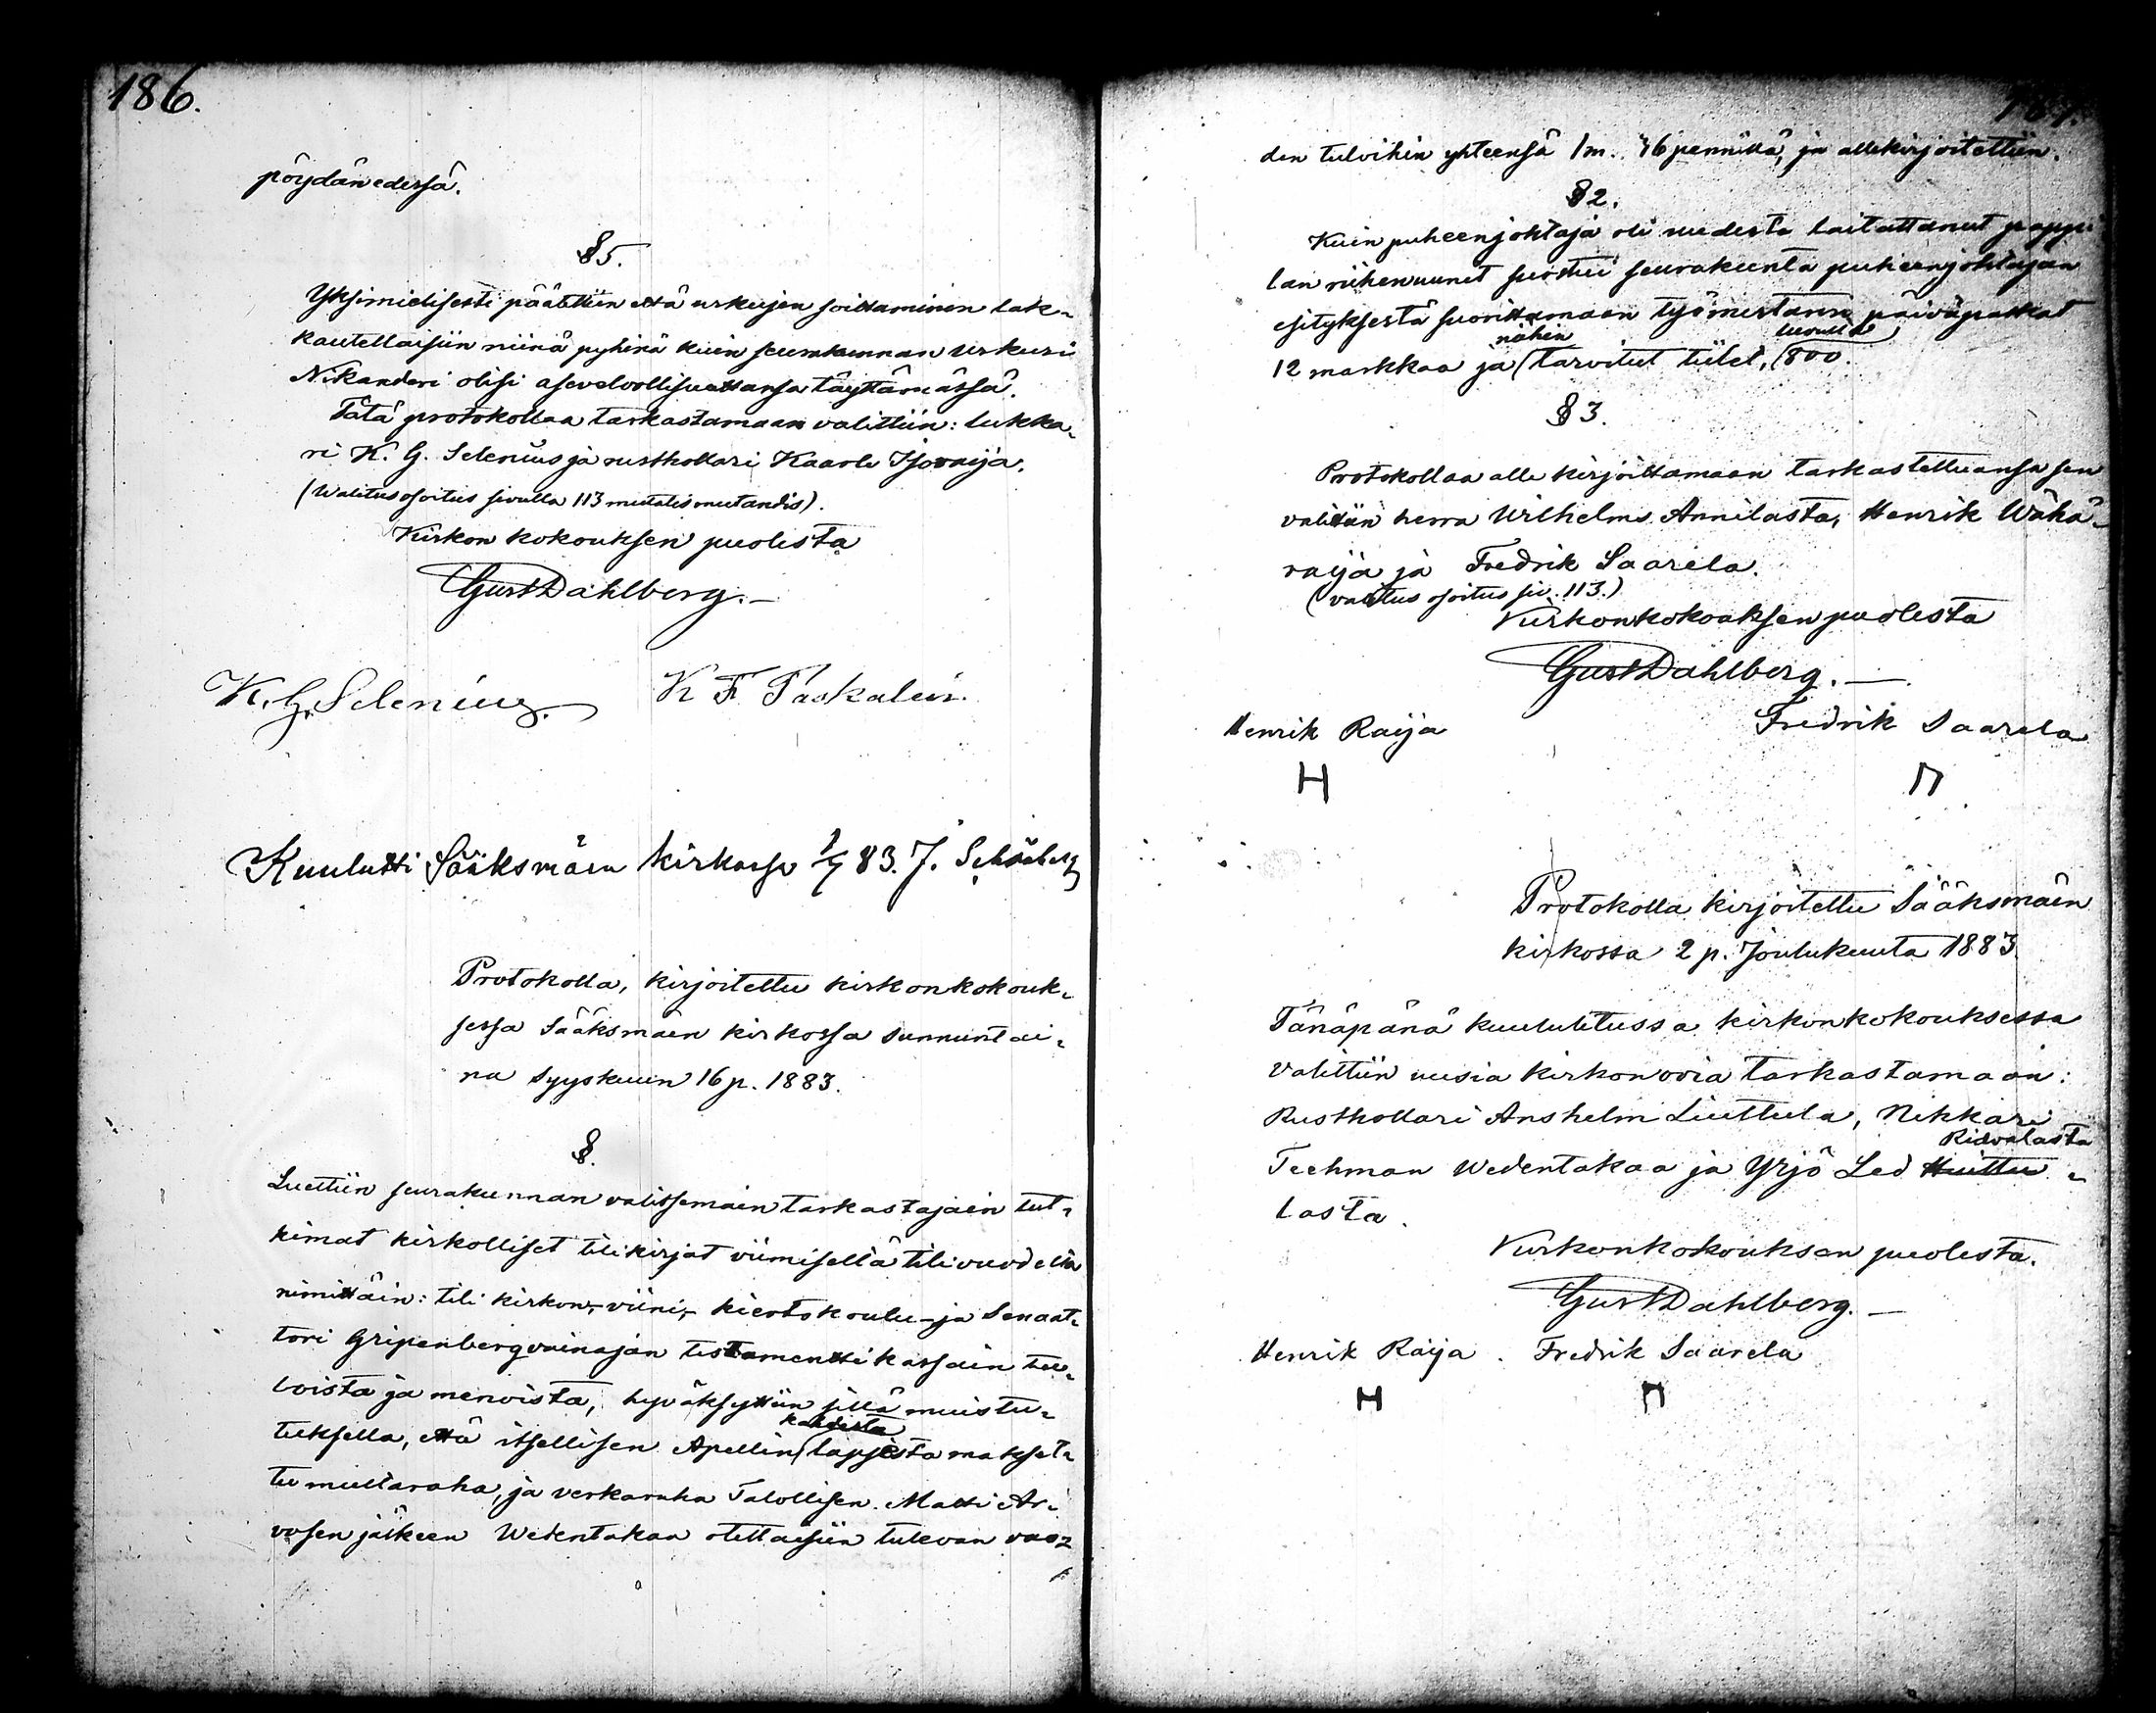 186.
pöydän edessä.
§5.
Yksimielisesti päätettiin että urkujen soittaminen lak-
kautettaisiin niinä pyhinä kuin seurakunnan Urkuri
Nikanderi olisi asevelvollisuuttansa täyttämässä.
Tätä protokollaa tarkastamaan valittiin: lukka-
ri K. G. Selenius ja rusthollari Kaarle Isoraija.
(Walitus osoitus sivulla 113 mutatis mutandis).
Kirkon kokouksen puolesta
Gust Dahlberg.—
K. G. Selenius. K F Paskaleii.
Kuulutti Sääksmäen kirkossa 1/7 83. J.
Protokolla, kirjoitettu kirkonkokouk-
sessa Sääksmäen kirkossa sunnuntai-
na Syyskuun 16 p. 1883.
§.
Luettiin seurakunnan valitsemain tarkastajain tut-
kimat kirkolliset tilikirjat viimisellä tilivuodelta
nimittäin: tili kirkon-, viini-, kiertokoulu- ja Senaat-
tori Gripenberg vainajan testamentti kassain tu-
loista ja menoista, hyväksyttiin sillä muistu-
kahdesta
tuksella, että itsellisen Apellin lapsista makset-
tu multaraha, ja verkaraha Talollisen Matti Ar-
vosen jälkeen Wedentakaa otettaisiin tulevan vuo-
187.
den tuloihin yhteensä 1 m. 76 penniä, ja allekirjoitettiin.
§2.
Kuin puheenjohtaja oli uudesta laitattanut pappi
lan riihenuunet suostui seurakunta puheenjohtajan
esityksestä suorittamaan työmestarin päiväpalkat
näihin luvulla
12 markkaa ja (tarvitut tiilet, (800.
§3.
Protokollaa alle kirjoittamaan tarkastettuansa sen
valittiin herra Wilhelms Annilasta, Henrik Wähä-
raija ja Fredrik Saarela.
(valitus osoitus siv. 113.)
Kirkonkokouksen puolesta
Gust Dahlberg.—
Henrik Raija Fredrik Saarela
H Π
Protokolla kirjoitettu Sääksmäen
kirkossa 2 p. Joulukuuta 1883.
Tänäpänä kuulutetussa kirkonkokouksessa
valittiin uusia kirkonovia tarkastamaan:
Rusthollari Anshelm Liuttula, Nikkari
Ridvalasta
Teehman Wedentakaa ja Yrjö Led Huittu-
lasta.
Kirkonkokouksen puolesta.
Gust Dahlberg.—
Henrik Raija. Fredrik Saarela
H Π